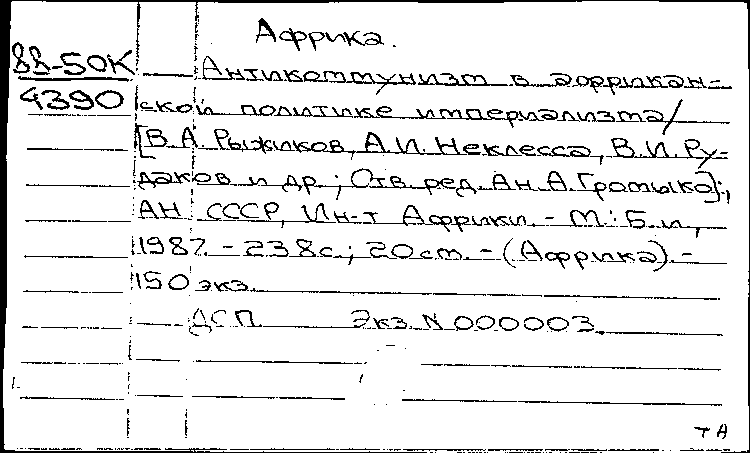 Африка.
88-50К
4390
Антикоммунизм в африкан-
ской политике империализма/
[В.А. Рыжиков, А.И. Неклесса, В.И. Ру-
даков и др.; Отв. ред. Ан. А. Громыко];
АН СССР, Ин-т Африки. - М.: Б.и,
1987. - 238с.; 20см. - (Африка). -
150 экз.
ДСП Экз. N 000003.
ТА